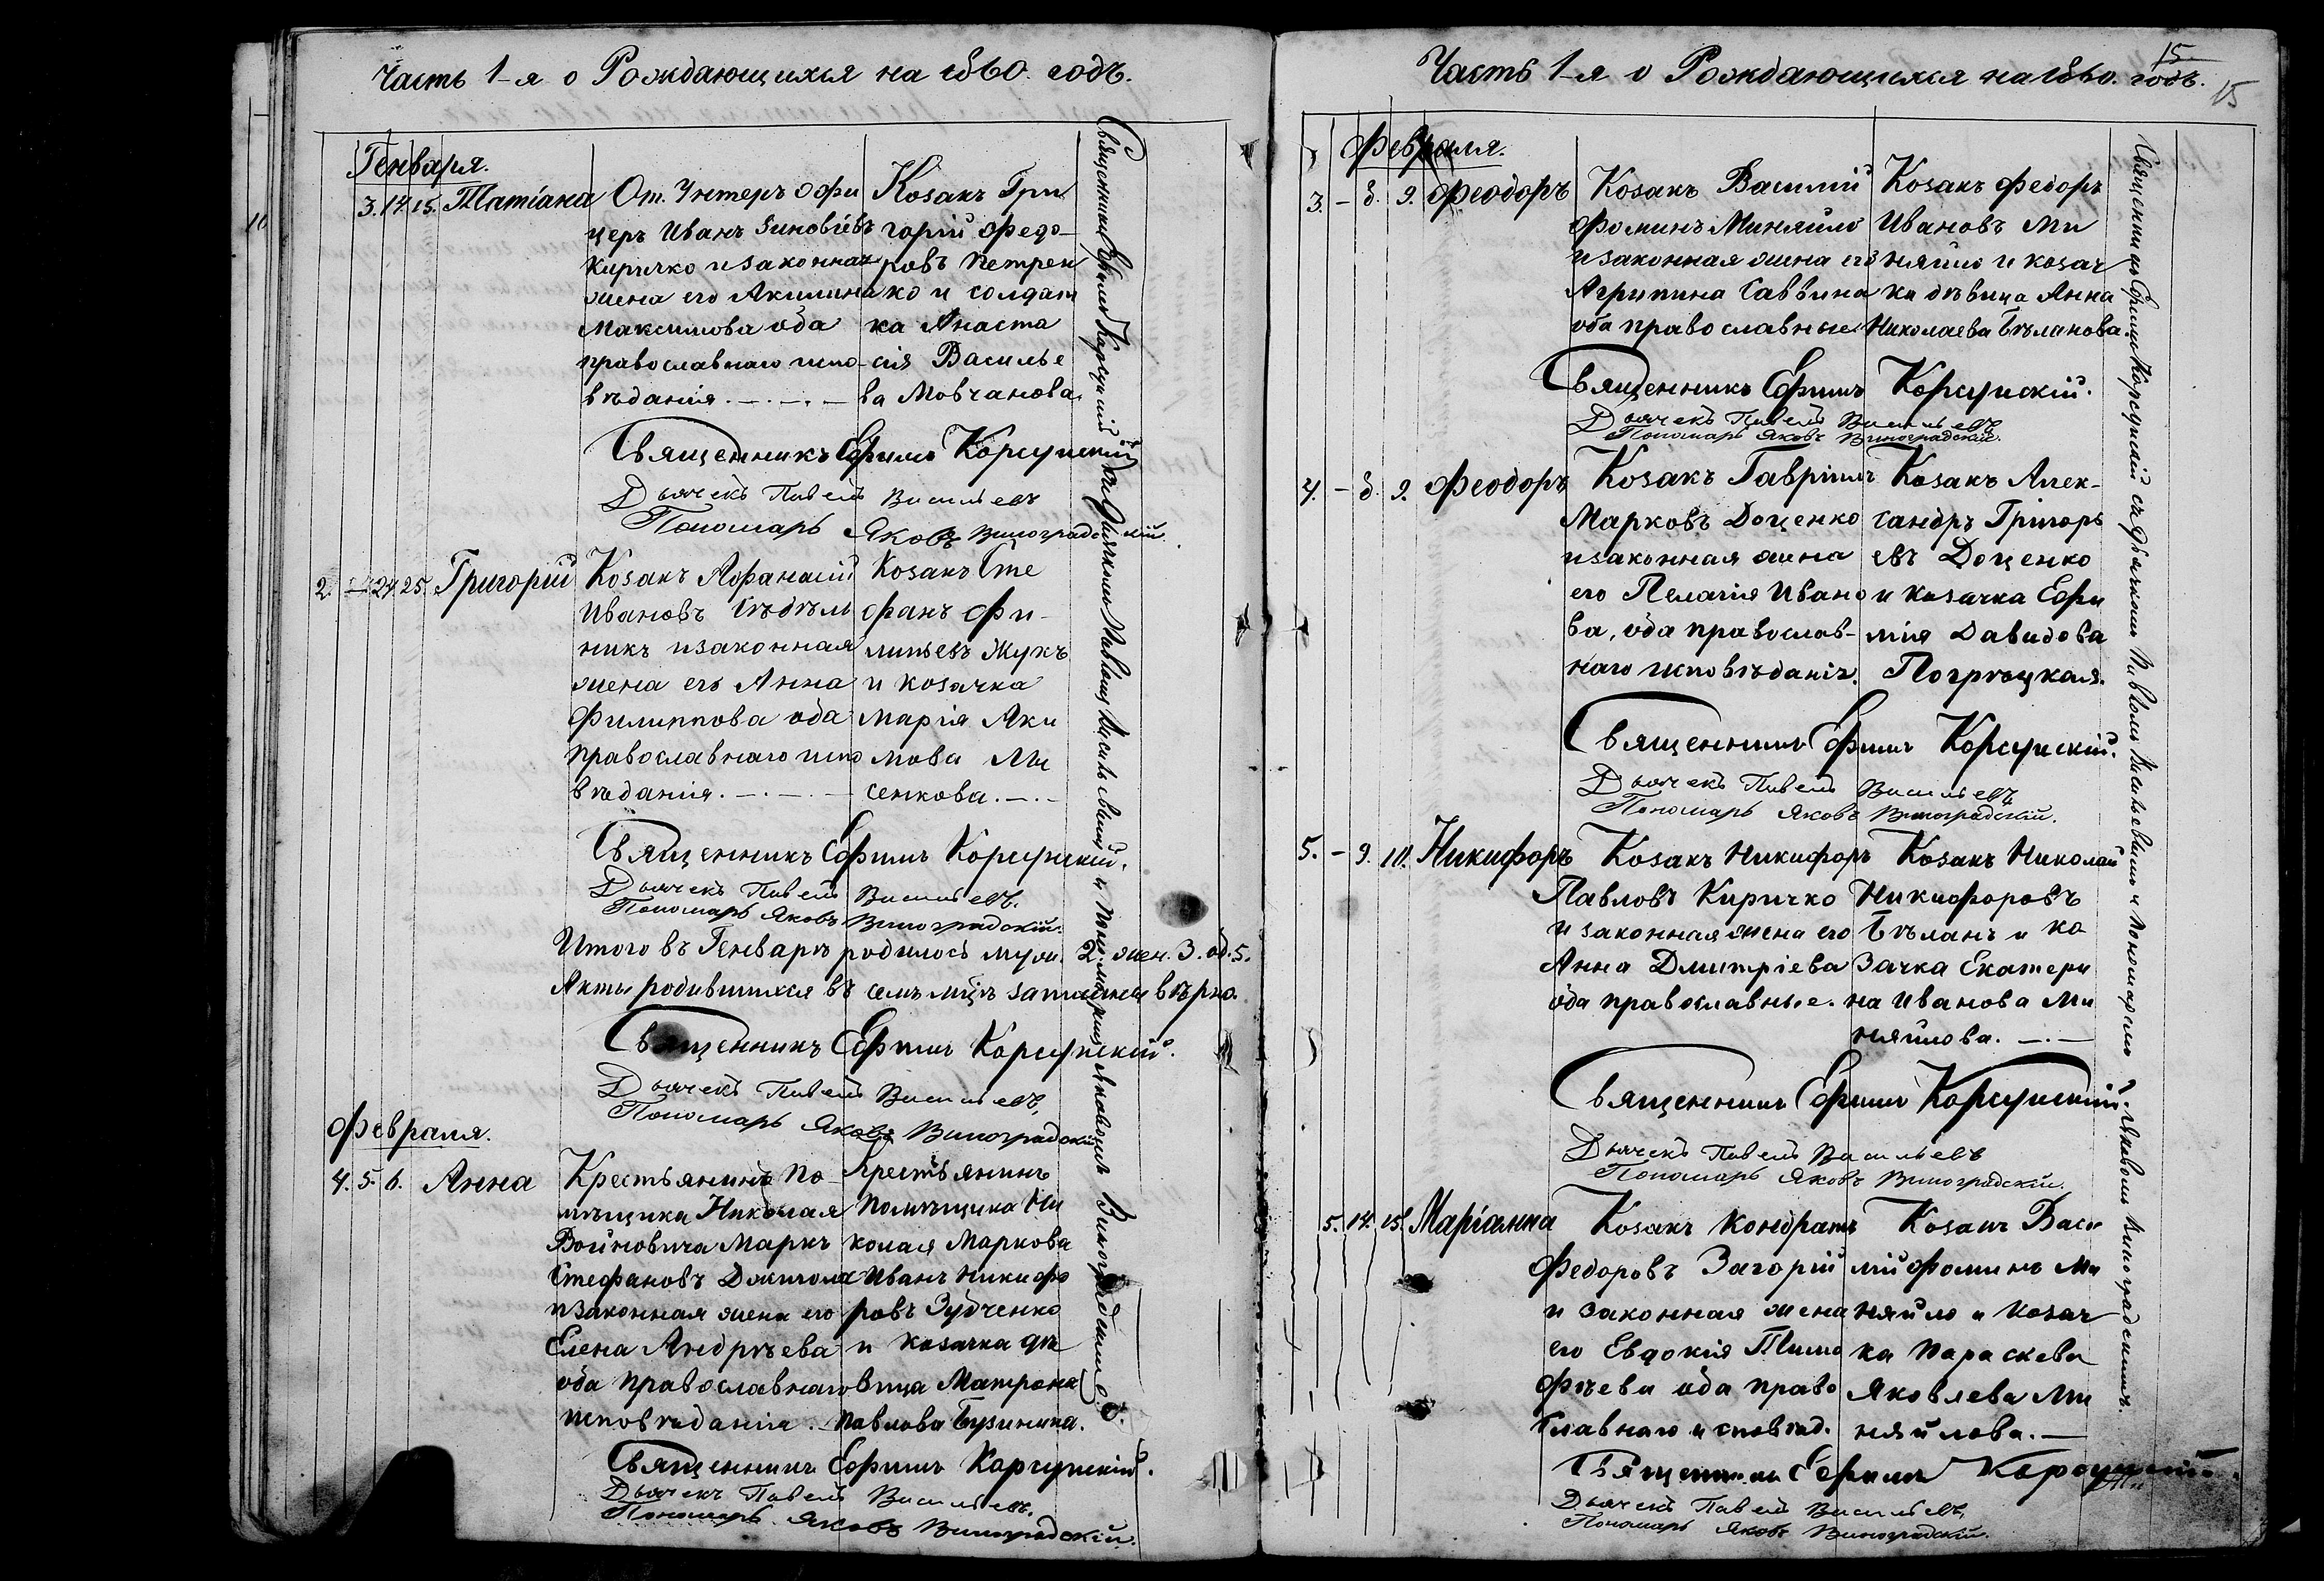 Часть 1-я о Рождающихся на 1860. годъ.
Генваря.
3. 14. 15. Татіана
От. Унтеръ офи
церъ Иванъ Зиновіевъ
Киричко и законная
жена его Акилина
Максимова оба
православнаго испо-
вѣданія.
Козакъ Гри
горій Федо-
ровъ Петрен
ко и солдат
ка Анаста
сія Василье
ва Мовчанова.
Священникъ Ефимъ Корсунскій
Дьячекъ Павелъ Васильевъ
Пономарь Яковъ Виноградскій.
2. 24. 25. Григорій
Козакъ Афанасій
Ивановъ Сѣдѣль
никъ и законная
жена его Анна
Филиппова оба
православнаго испо
вѣданія.
Козакъ Сте
фанъ Фи-
липьевъ Жукъ
и козачка
Марія Яки
мова Ли
сенкова.
Священникъ Ефимъ Корсунскій.
Дьячекъ Павелъ Васильевъ.
Пономарь Яковъ Виноградскій.
Итого въ Генварѣ родилось муж. 2. жен. 3. об. 5.
Акты родившихся въ семъ м-цѣ записаны вѣрно.
Священникъ Ефимъ Корсунскій.
Дьячекъ Павелъ Васильевъ,
Пономарь Яковъ Виноградскій
Февраля.
4. 5. 6. Анна
Крестьянинъ по-
мѣщика Николая
Войновича Маркъ
Стефановъ
и законная жена его
Елена Андрѣева
оба православнаго
исповѣданія.
Крестьянинъ
помѣщика Ни
колая Маркова
Иванъ Никифо
ровъ Зубченко
и козачка дѣ
вица Матрона
Павлова
Священникъ Ефимъ Корсунскій.
Дьячекъ Павелъ Васильевъ.
Пономарь Яковъ Виноградскій.
Священникъ Ефимъ Корсунскій съ дьячкомъ Павломъ Васильевымъ и Пономаремъ Яковомъ Виноградскимъ.
15.
15
Часть 1-я о Рождающихся на 1860. годъ.
Февраля.
3. - 8. 9. Феодоръ
Козакъ Василій
Фоминъ Миняйло
и законная жена его
Агрипина Саввина
оба православные
Козакъ Федоръ
Ивановъ Ми
няйло и козач
ка дѣвица Анна
Николаева Бѣланова.
Священникъ Ефимъ Корсунскій.
Дьячекъ Павелъ Васильевъ
Пономарь Яковъ Виноградскій.
4. - 8. 9. Феодоръ
Козакъ Гавріилъ
Марковъ Доценко
и законная жена
его Пелагія Ивано
ва, оба православ-
наго исповѣданія.
Козакъ Алек-
сандръ Григорь
евъ Доценко
и козачка Ефи
мія Давидова
Погрѣцкая.
Священникъ Ефимъ Корсунскій.
Дьячекъ Павелъ Васильевъ
Пономарь Яковъ Виноградскій.
5. - 9. 10. Никифоръ
Козакъ Никифоръ
Павловъ Киричко
и законная жена его
Анна Дмитріева
оба православные.
Козакъ Николай
Никифоровъ
Бѣланъ и ко
зачка Екатери
на Иванова Ми
няйлова.
Священникъ Ефимъ Корсунскій.
Дьячекъ Павелъ Васильевъ
Пономарь Яковъ Виноградскій.
5. 14. 15. Маріанна
Козакъ Кондратъ
Федоровъ Загорій
и законная жена
его Евдокія Тимо
фѣева оба право
славнаго исповѣд.
Козакъ Васи
лій Фоминъ Ми
няйло и козач
ка Параскева
Яковлева Ми
няйлова.
Священникъ Ефимъ Корсунскій.
Дьячекъ Павелъ Васильевъ,
Пономарь Яковъ Виноградскій.
Священникъ Ефимъ Корсунскій съ дьячкомъ Павломъ Васильевымъ и Пономаремъ Яковомъ Виноградскимъ.